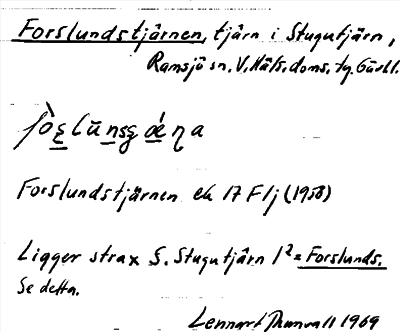 Forslundstjärnen, tjärn i Stugutjärn,
Ramsjö sn. V. Häls. doms. tg. Gävl.
Forslundstjärnen ek 17 F 1j (1958)
Ligger strax S. Stugutjärn 1² = Forslunds.
Se detta.
Lennart Thunvall 1969